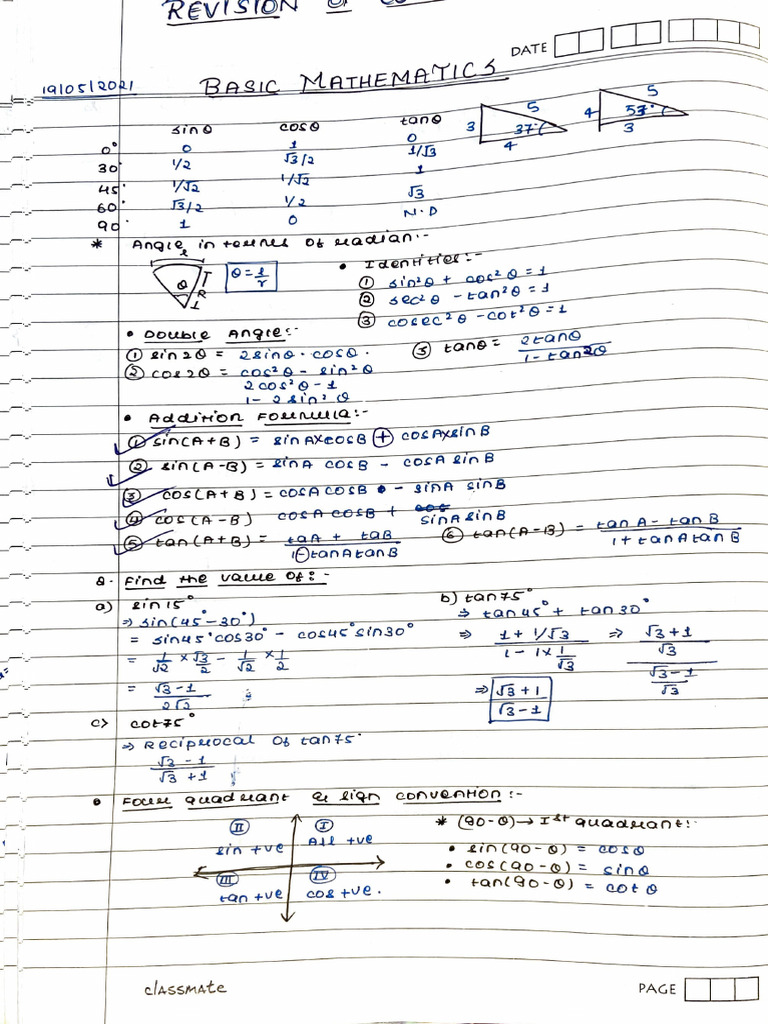 REVISION OF
DATE
19/05/2021 BASIC MATHEMATICS
sinθ cosθ tanθ
0° 0 1 0
30° 1/2 √3/2 1/√3
45° 1/√2 1/√2 1
60° √3/2 1/2 √3
90° 1 0 N.D
3 5 37° 4
4 5 53° 3
* Angle in terms of radian:-
l θ R θ = l/r
• Identities:-
① sin²θ + cos²θ = 1
② sec²θ - tan²θ = 1
③ cosec²θ - cot²θ = 1
• Double Angle:-
① sin2θ = 2sinθ·cosθ.
② cos2θ = cos²θ - sin²θ
2cos²θ - 1
1 - 2sin²θ
③ tanθ = 2tanθ / 1 - tan2θ
• Addition Formula:-
① sin(A+B) = sinA×cosB + cosA×sinB
② sin(A-B) = sinA cosB - cosA sinB
③ cos(A+B) = cosAcosB - sinA sinB
④ cos(A-B) cosAcosB + sinAsinB
⑤ tan(A+B) = taA + taB / 1-tanAtanB
⑥ tan(A-B) = tanA - tanB / 1 + tanAtanB
Q. Find the value of:-
a) sin15°
⇒ sin(45°-30°)
= sin45°cos30° - cos45°sin30°
= 1/√2 × √3/2 - 1/√2 × 1/2
= √3-1 / 2√2
b) tan75°
⇒ tan45° + tan30°
⇒ 1 + 1/√3 / 1 - 1×1/√3 ⇒ √3+1/√3 / √3-1/√3
⇒ √3+1 / √3-1
c) cot75°
⇒ Reciprocal of tan75°
√3-1 / √3+1
• Four quadrant & sign convention:-
II sin +ve
I All +ve
III tan +ve
IV cos +ve.
* (90-θ) → Ist quadrant:-
• sin(90-θ) = cosθ
• cos(90-θ) = sinθ
• tan(90-θ) = cotθ
classmate
PAGE